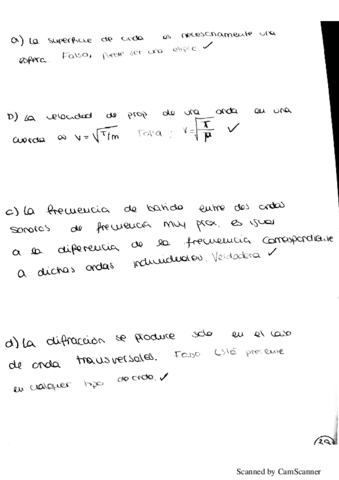 a) La superficie de onda es necesariamente una
esfera. Falso, puede ser una elipse ✓
b) La velocidad de prop de una onda en una
cuerda es v = √T/m Falsa ; v = √T/μ ✓
c) La frecuencia de batido entre dos ondas
sonoras de frecuencia muy prox. es igual
a la diferencia de la frecuencia correspondiente
a dichas ondas individuales. Verdadera ✓
d) La difracción se produce solo en el caso
de onda transversales. Falso Está presente
en cualquier tipo de onda. ✓
29
Scanned by CamScanner